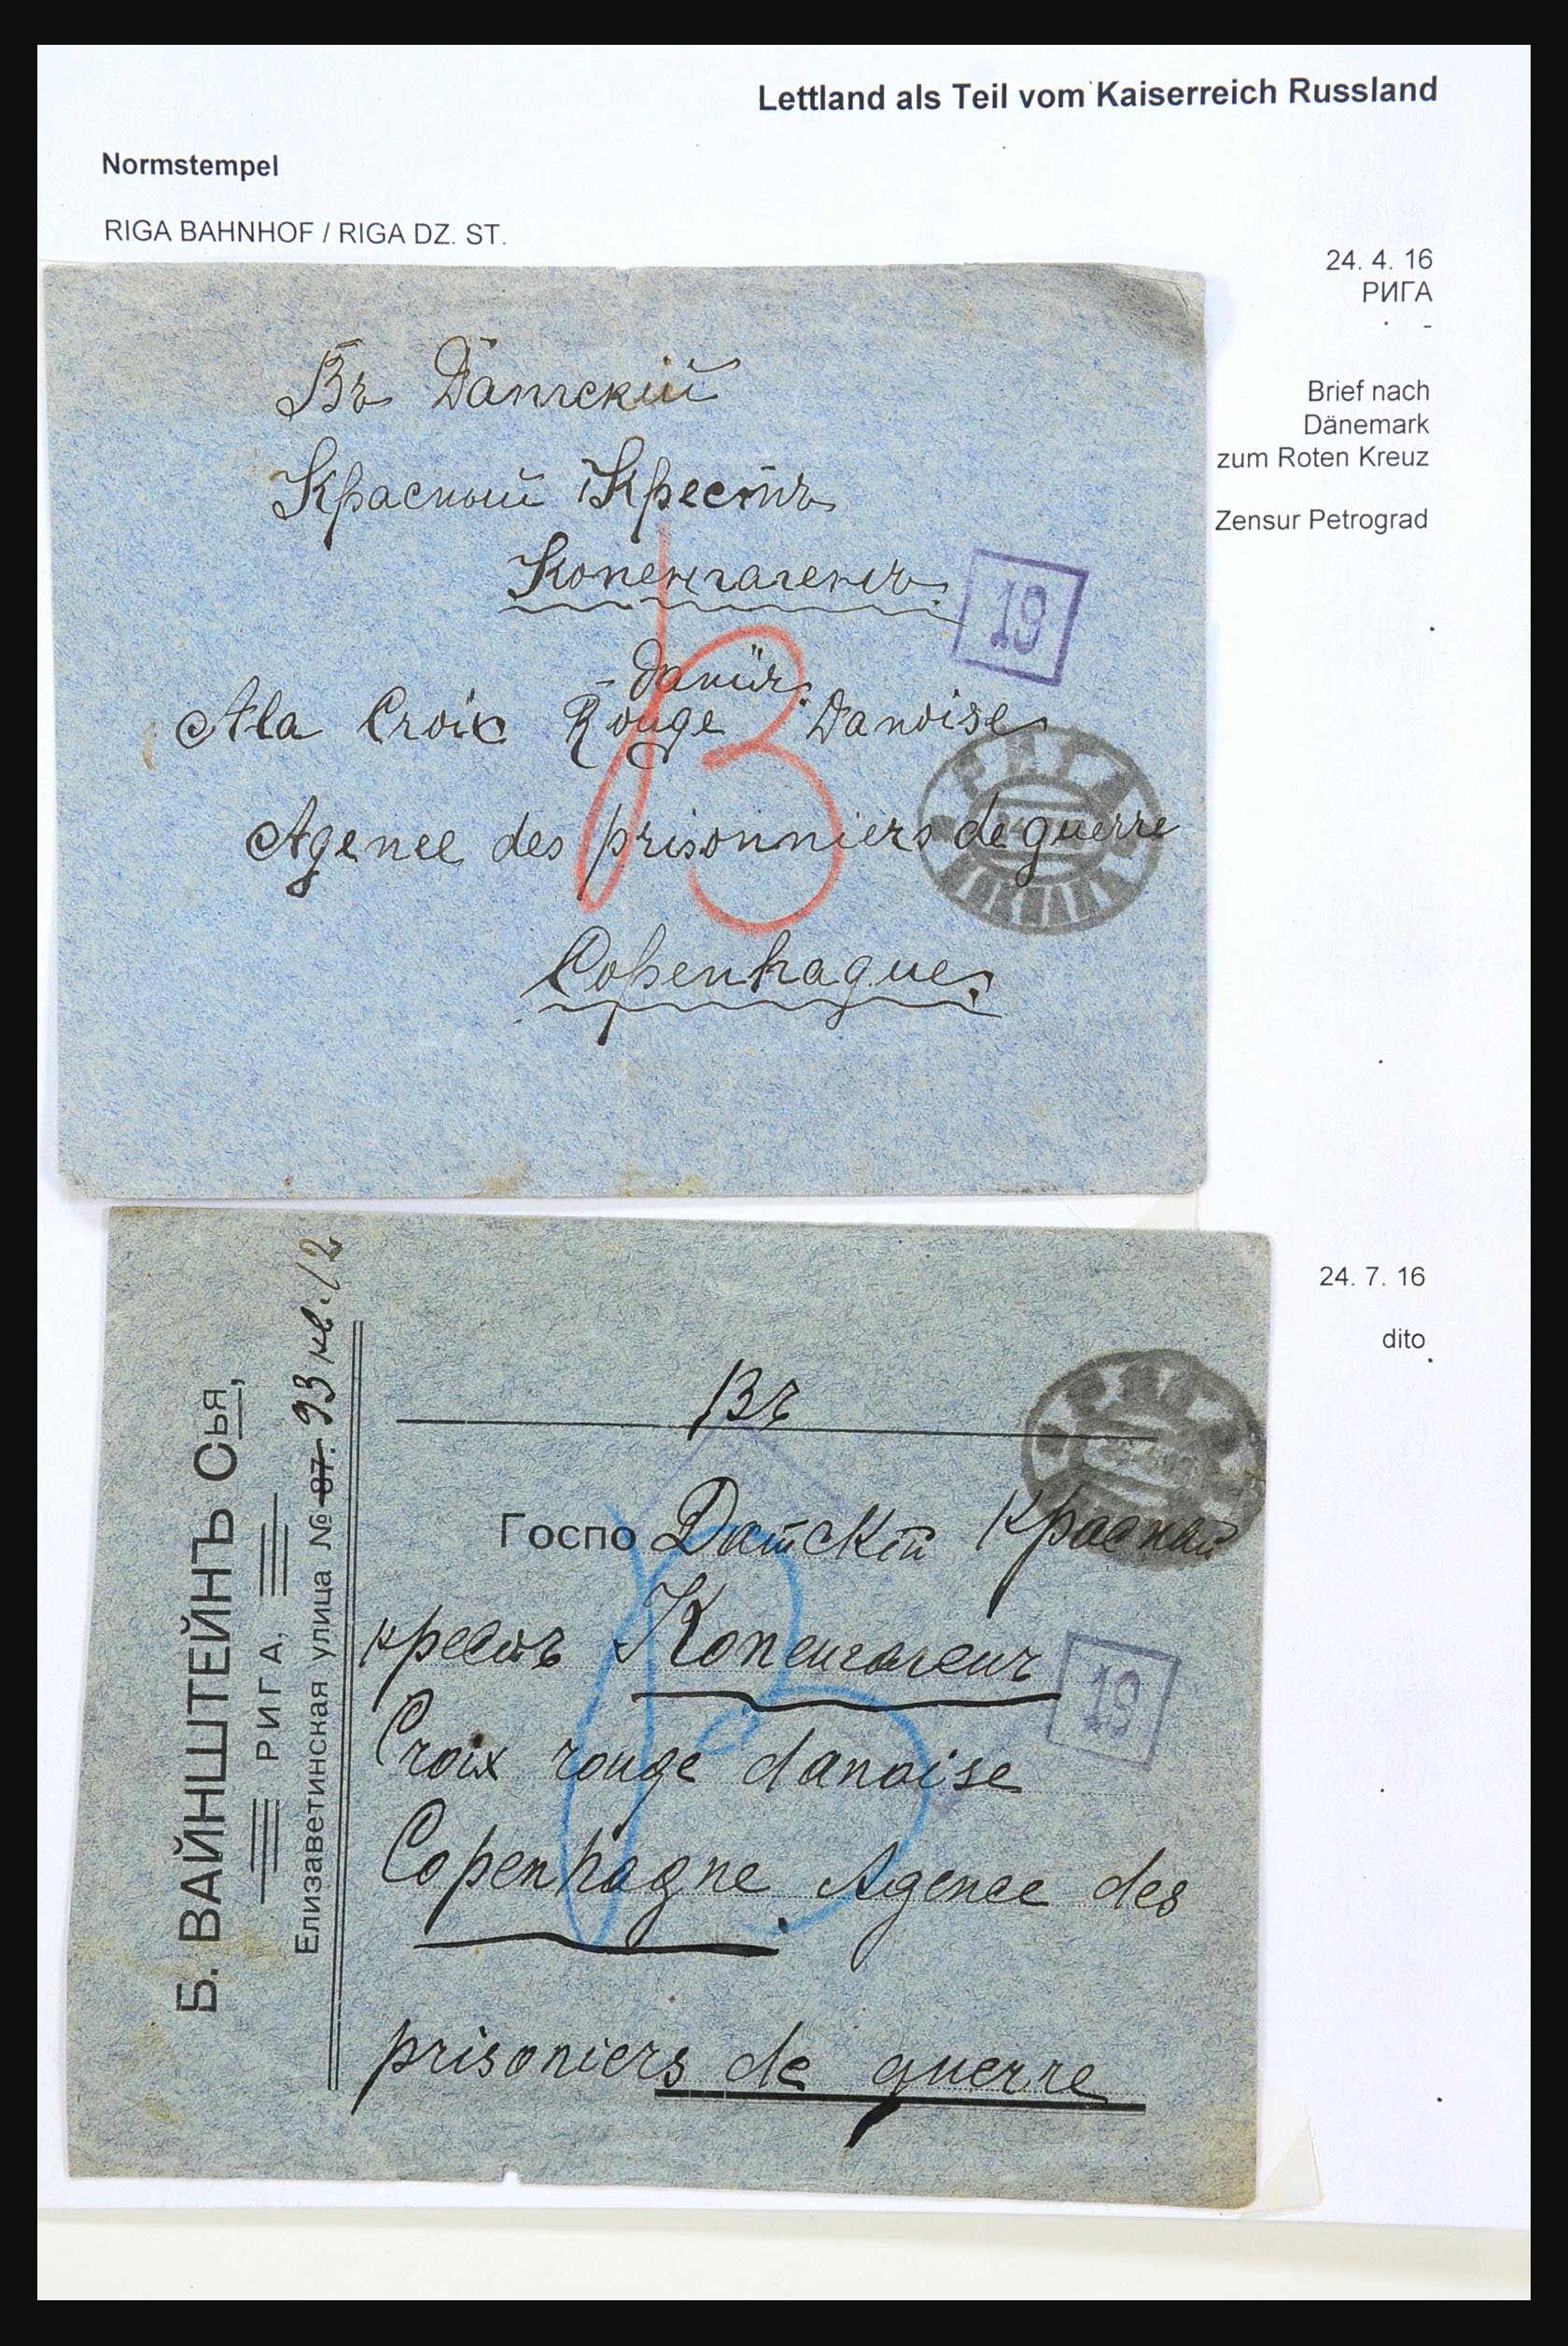 Lettland als Teil vom Kaiserreich Russland
Normstempel
RIGA BAHNHOF / RIGA DZ. ST.
24. 4. 16
РИГА
-
Brief nach
Dänemark
zum Roten Kreuz
Zensur Petrograd
Въ Датскій
Красный Крестъ
Копенгагенъ.
19
Данія.
A la Croix Rouge Danoise
Agence des prisonniers de guerre
Copenhague.
РИГА
24. 7. 16
dito
Б. ВАЙНШТЕЙНЪ Сья,
РИГА,
Елизаветинская улица № 87. 93 кв. 12
Въ
Госпо Датскій Красный
крестъ Копенгагенъ
19
Croix rouge danoise
Copenhagne. Agence des
prisoniers de guerre